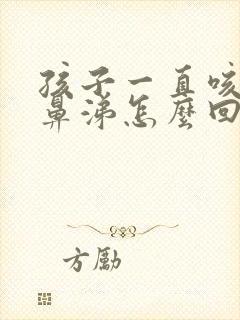 孩子一直咳
鼻涕怎麼回
方勵